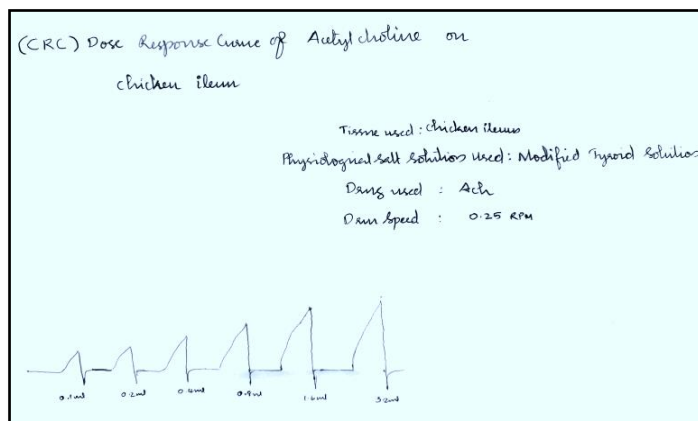 (CRC) Dose Response Curve of Acetylcholine on
chicken ileum
Tissue used : chicken ileum
Physiological salt solution used : Modified Tyroid solution
Drug used : Ach
Drum speed : 0.25 RPM
0.1ml 0.2ml 0.4ml 0.8ml 1.6ml 3.2ml